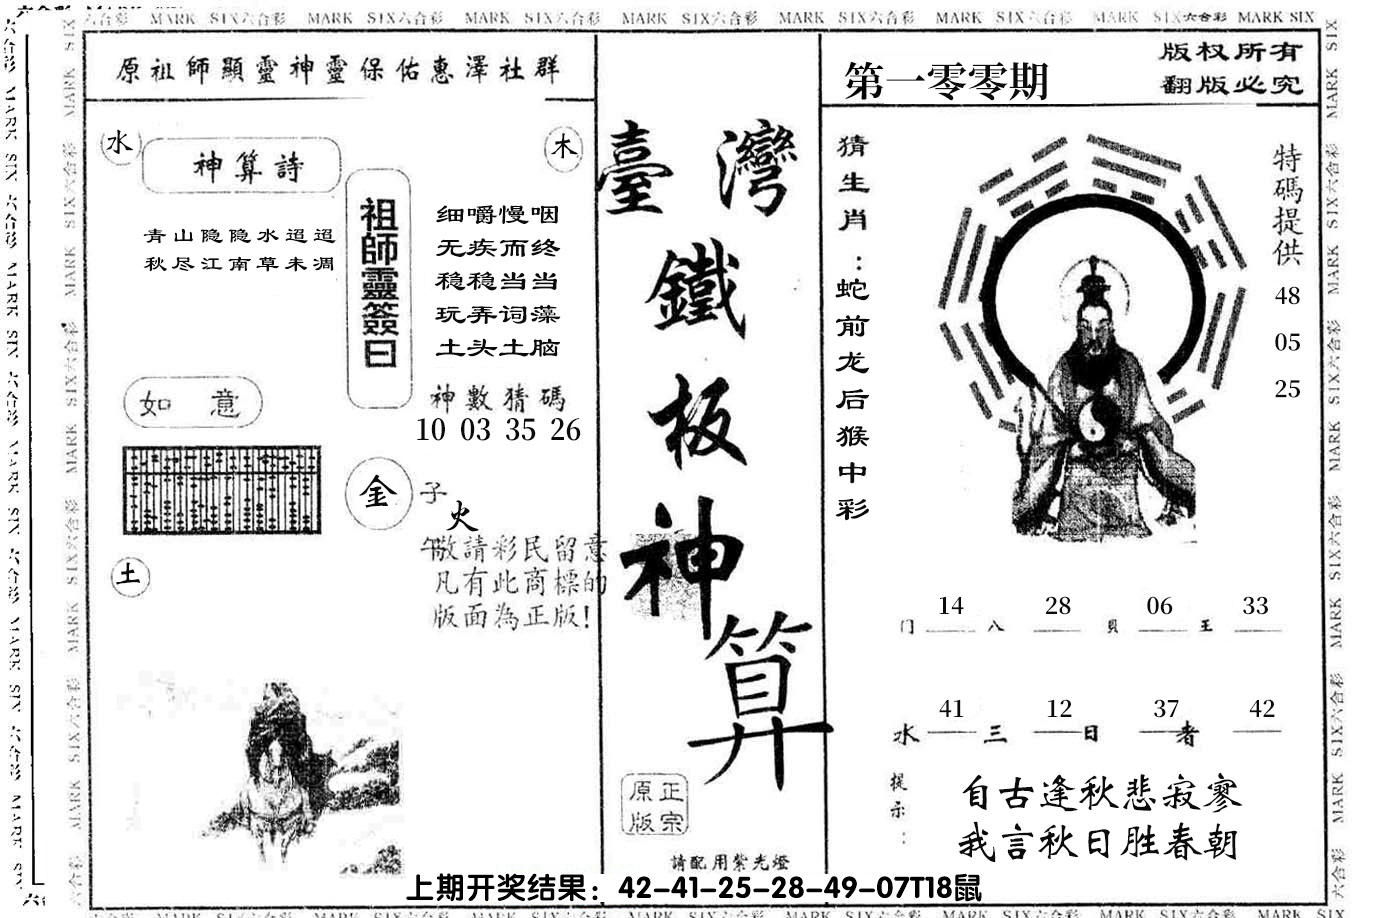 MARK SIX六合彩 MARK SIX六合彩 MARK SIX六合彩 MARK SIX六合彩 MARK SIX六合彩 MARK SIX六合彩 MARK SIX六合彩 MARK SIX
原祖師顯靈神靈保佑惠澤社群
水
神算詩
木
青山隐隐水迢迢
秋尽江南草未凋
祖師靈簽曰
细嚼慢咽
无疾而终
稳稳当当
玩弄词藻
土头土脑
如意
神數猜碼
10 03 35 26
金
子
火
午
敬請彩民留意
凡有此商標的
版面為正版!
土
臺灣
鐵
板
神
算
正宗
原版
請配用紫光燈
第一零零期
版权所有
翻版必究
猜生肖:蛇前龙后猴中彩
特碼提供
48
05
25
14 28 06 33
门 八 貝 王
41 12 37 42
水 三 日 者
提示:
自古逢秋悲寂寥
我言秋日胜春朝
上期开奖结果：42-41-25-28-49-07T18鼠